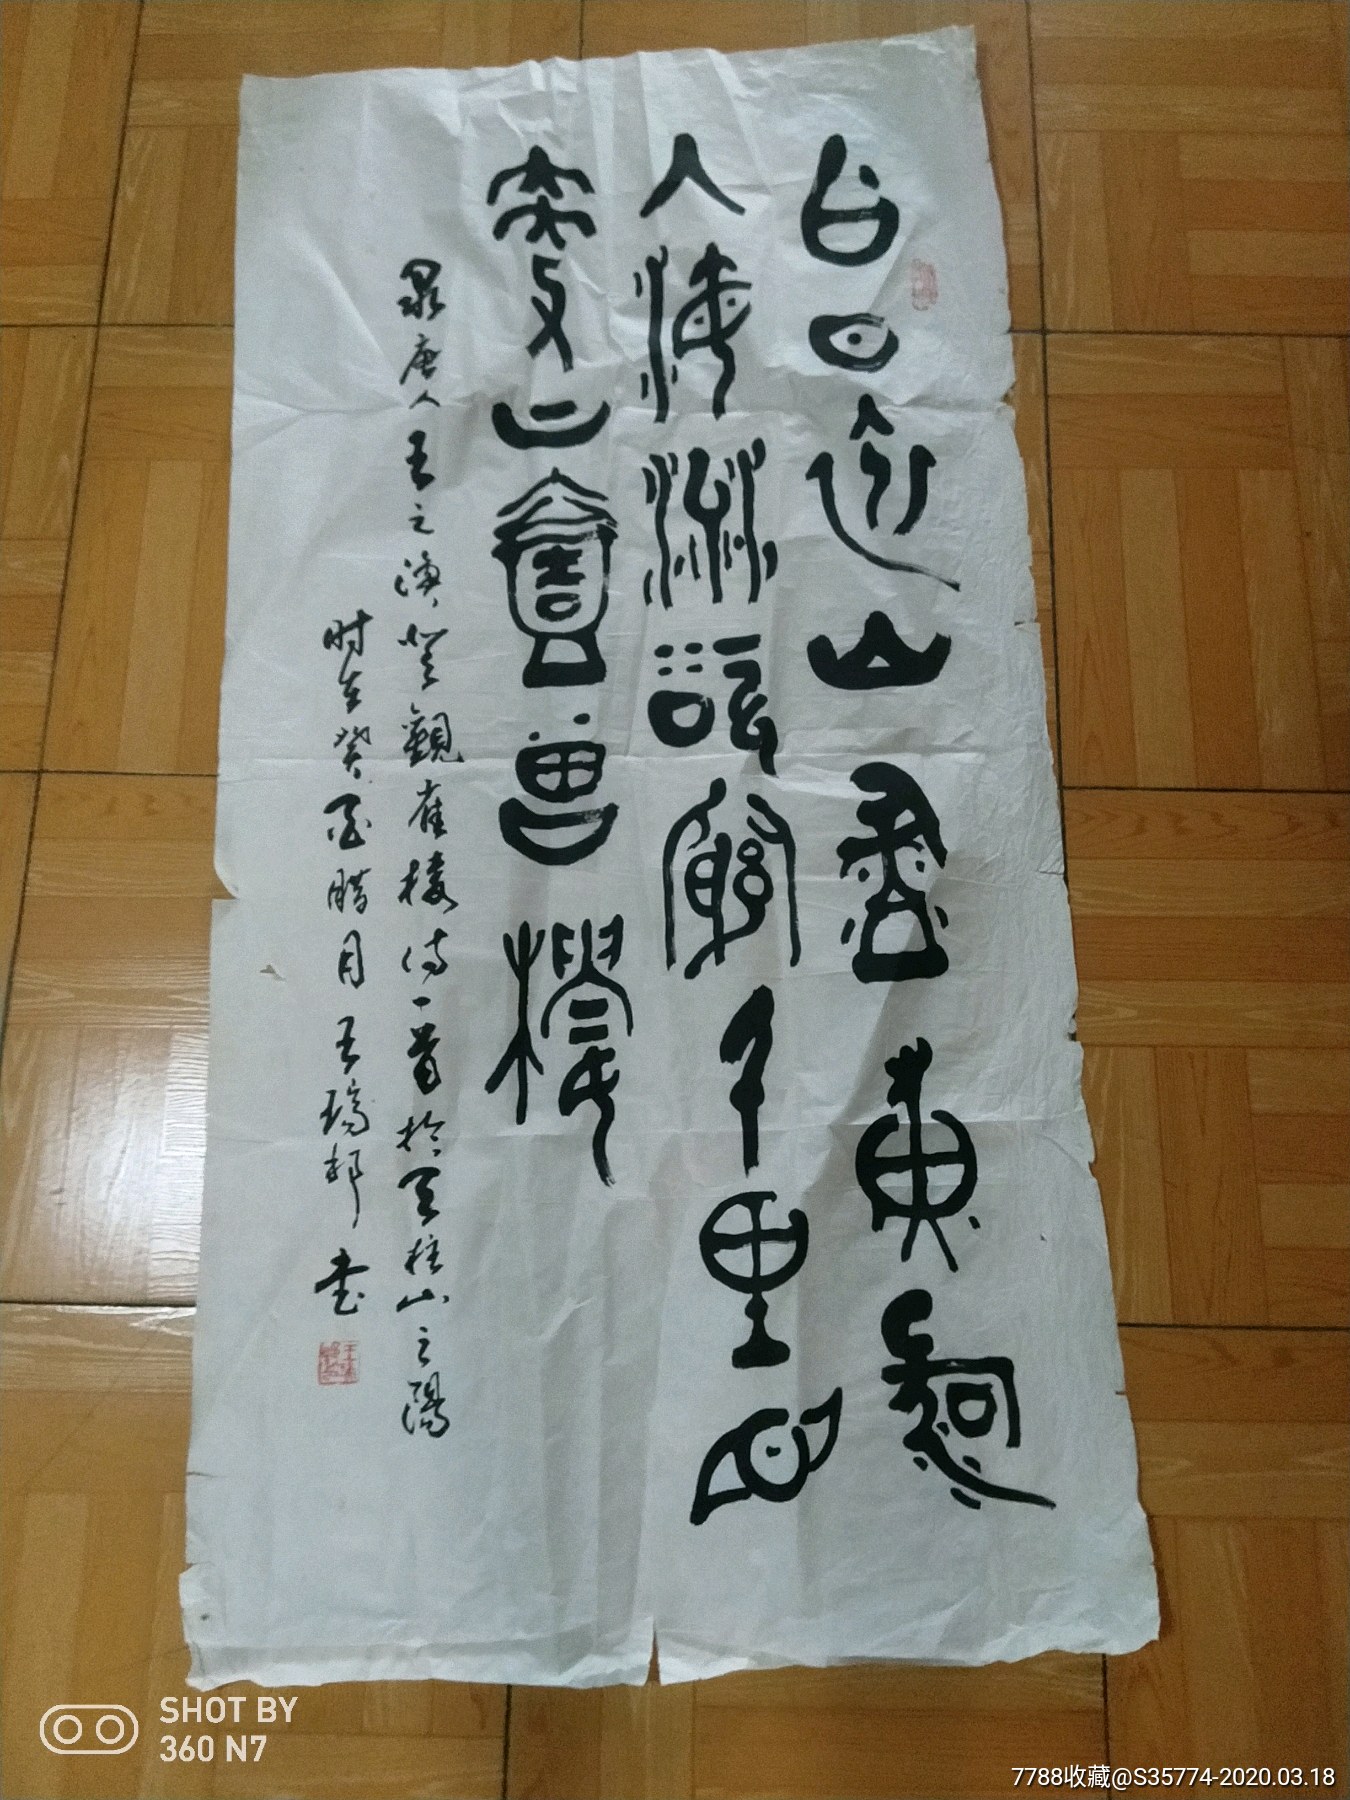 白日依山盡黃河
入海流欲窮千里目
更上一層樓
录唐人王之渙登觀雀楼诗一首於天柱山之陽
时在癸酉腊月王邦书
SHOT BY
360 N7
7788收藏@S35774-2020.03.18